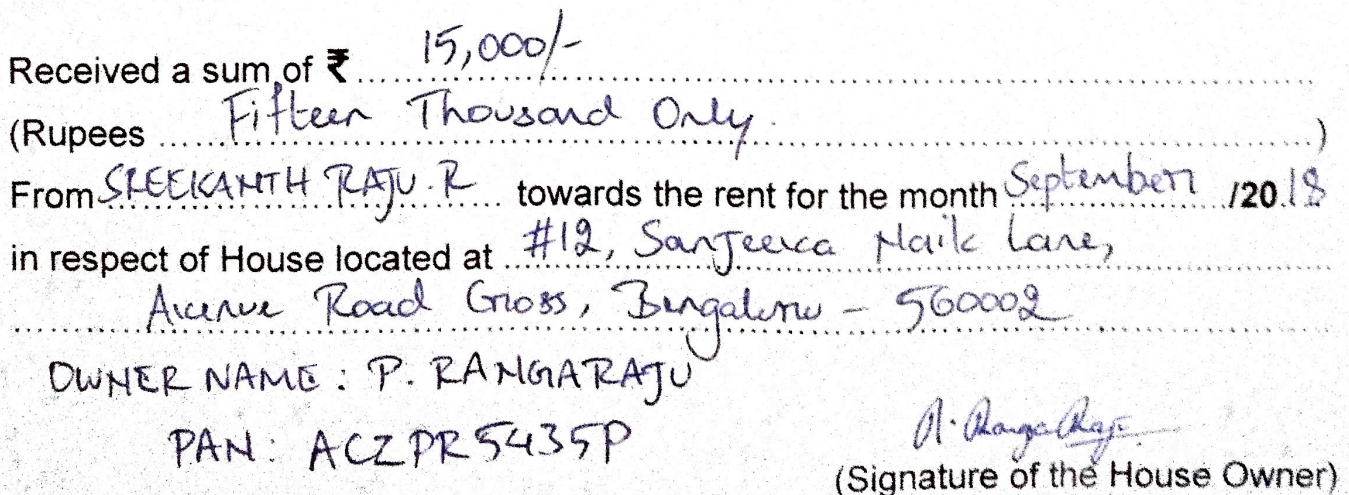 Received a sum of ₹ 15,000/-
(Rupees Fifteen Thousand Only. )
From SREEKANTH RAJU. R towards the rent for the month September /2018
in respect of House located at #12, Sanjeeva Naik Lane,
Avenue Road Cross, Bengaluru - 560002
OWNER NAME: P. RANGARAJU
PAN: ACZPR5435P
P. Ranga Raju
(Signature of the House Owner)